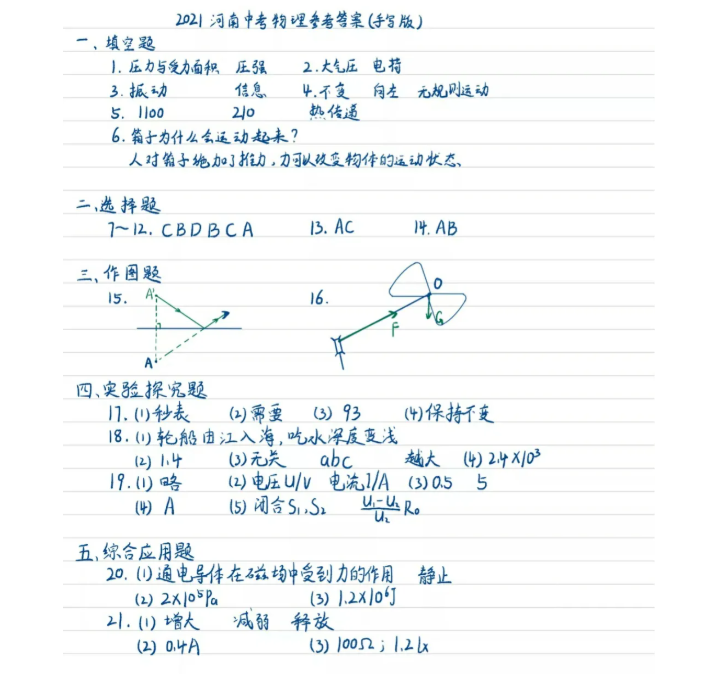 2021 河南中考物理参考答案(手写版)
一、填空题
1. 压力与受力面积 压强 2. 大气压 电荷
3. 振动 信息 4. 不变 向左 无规则运动
5. 1100 210 热传递
6. 箱子为什么会运动起来?
人对箱子施加了推力,力可以改变物体的运动状态、
二、选择题
7~12. C B D B C A 13. AC 14. AB
三、作图题
15. A' A 16. O F G
四、实验探究题
17. (1) 秒表 (2) 需要 (3) 93 (4) 保持不变
18. (1) 轮船由江入海,吃水深度变浅
(2) 1.4 (3) 无关 abc 越大 (4) 2.4×10³
19. (1) 略 (2) 电压U/V 电流I/A (3) 0.5 5
(4) A (5) 闭合S₁、S₂ (U₁-U₂)/U₂ R₀
五、综合应用题
20. (1) 通电导体在磁场中受到力的作用 静止
(2) 2×10⁵Pa (3) 1.2×10⁶J
21. (1) 增大 减弱 释放
(2) 0.4A (3) 100Ω; 1.2lx